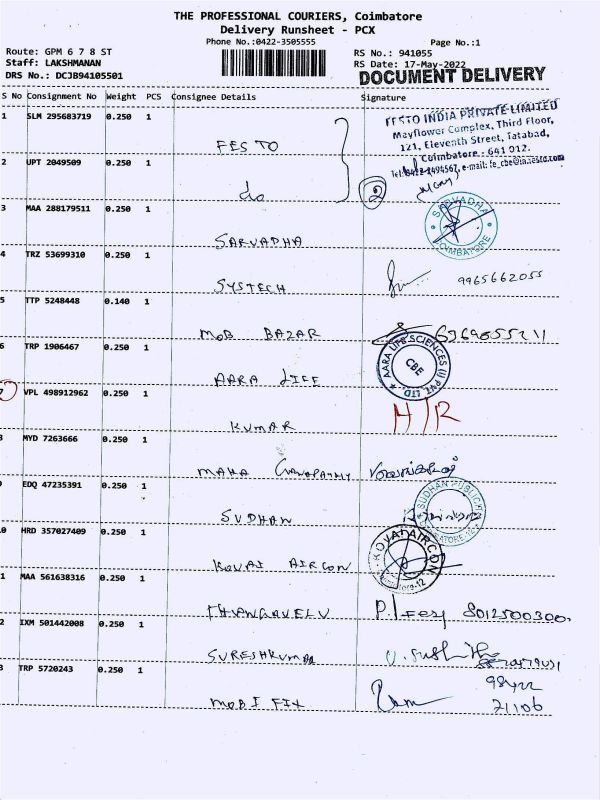 THE PROFESSIONAL COURIERS, Coimbatore
Delivery Runsheet - PCX
Phone No.:0422-3505555 Page No.:1
Route: GPM 6 7 8 ST RS No.: 941055
Staff: LAKSHMANAN RS Date: 17-May-2022
DRS No.: DCJB94105501 DOCUMENT DELIVERY
S No Consignment No Weight PCS Consignee Details Signature
1 SLM 295683719 0.250 1
FESTO
FESTO INDIA PRIVATE LIMITED
Mayflower Complex, Third Floor,
121, Eleventh Street, Tatabad,
Coimbatore - 641 012.
Tel:0422-2494567, e-mail: fe_cbe@in.festo.com
2 UPT 2049509 0.250 1
do 2
3 MAA 288179511 0.250 1
SARVADHA
SARVADHA COIMBATORE
4 TRZ 53699310 0.250 1
SYSTECH 9965662055
5 TTP 5248448 0.140 1
MOB BAZAR
6 TRP 1906467 0.250 1
AARA LIFE
AARA LIFE SCIENCES (I) PVT. LTD. CBE
7 VPL 498912962 0.250 1
KUMAR
8 MYD 7263666 0.250 1
MAHA GANAPATHY
9 EDQ 47235391 0.250 1
SUDHAN
SUDHAN PUBLICITY
HRD 357027409 0.250 1
KOVAI AIRCON
KOVAI AIRCON
1 MAA 561638316 0.250 1
THANGAVELU 8012500300
2 IXM 501442008 0.250 1
SURESHKUMAR
3 TRP 5720243 0.250 1
MOBI FIX
98422
71106